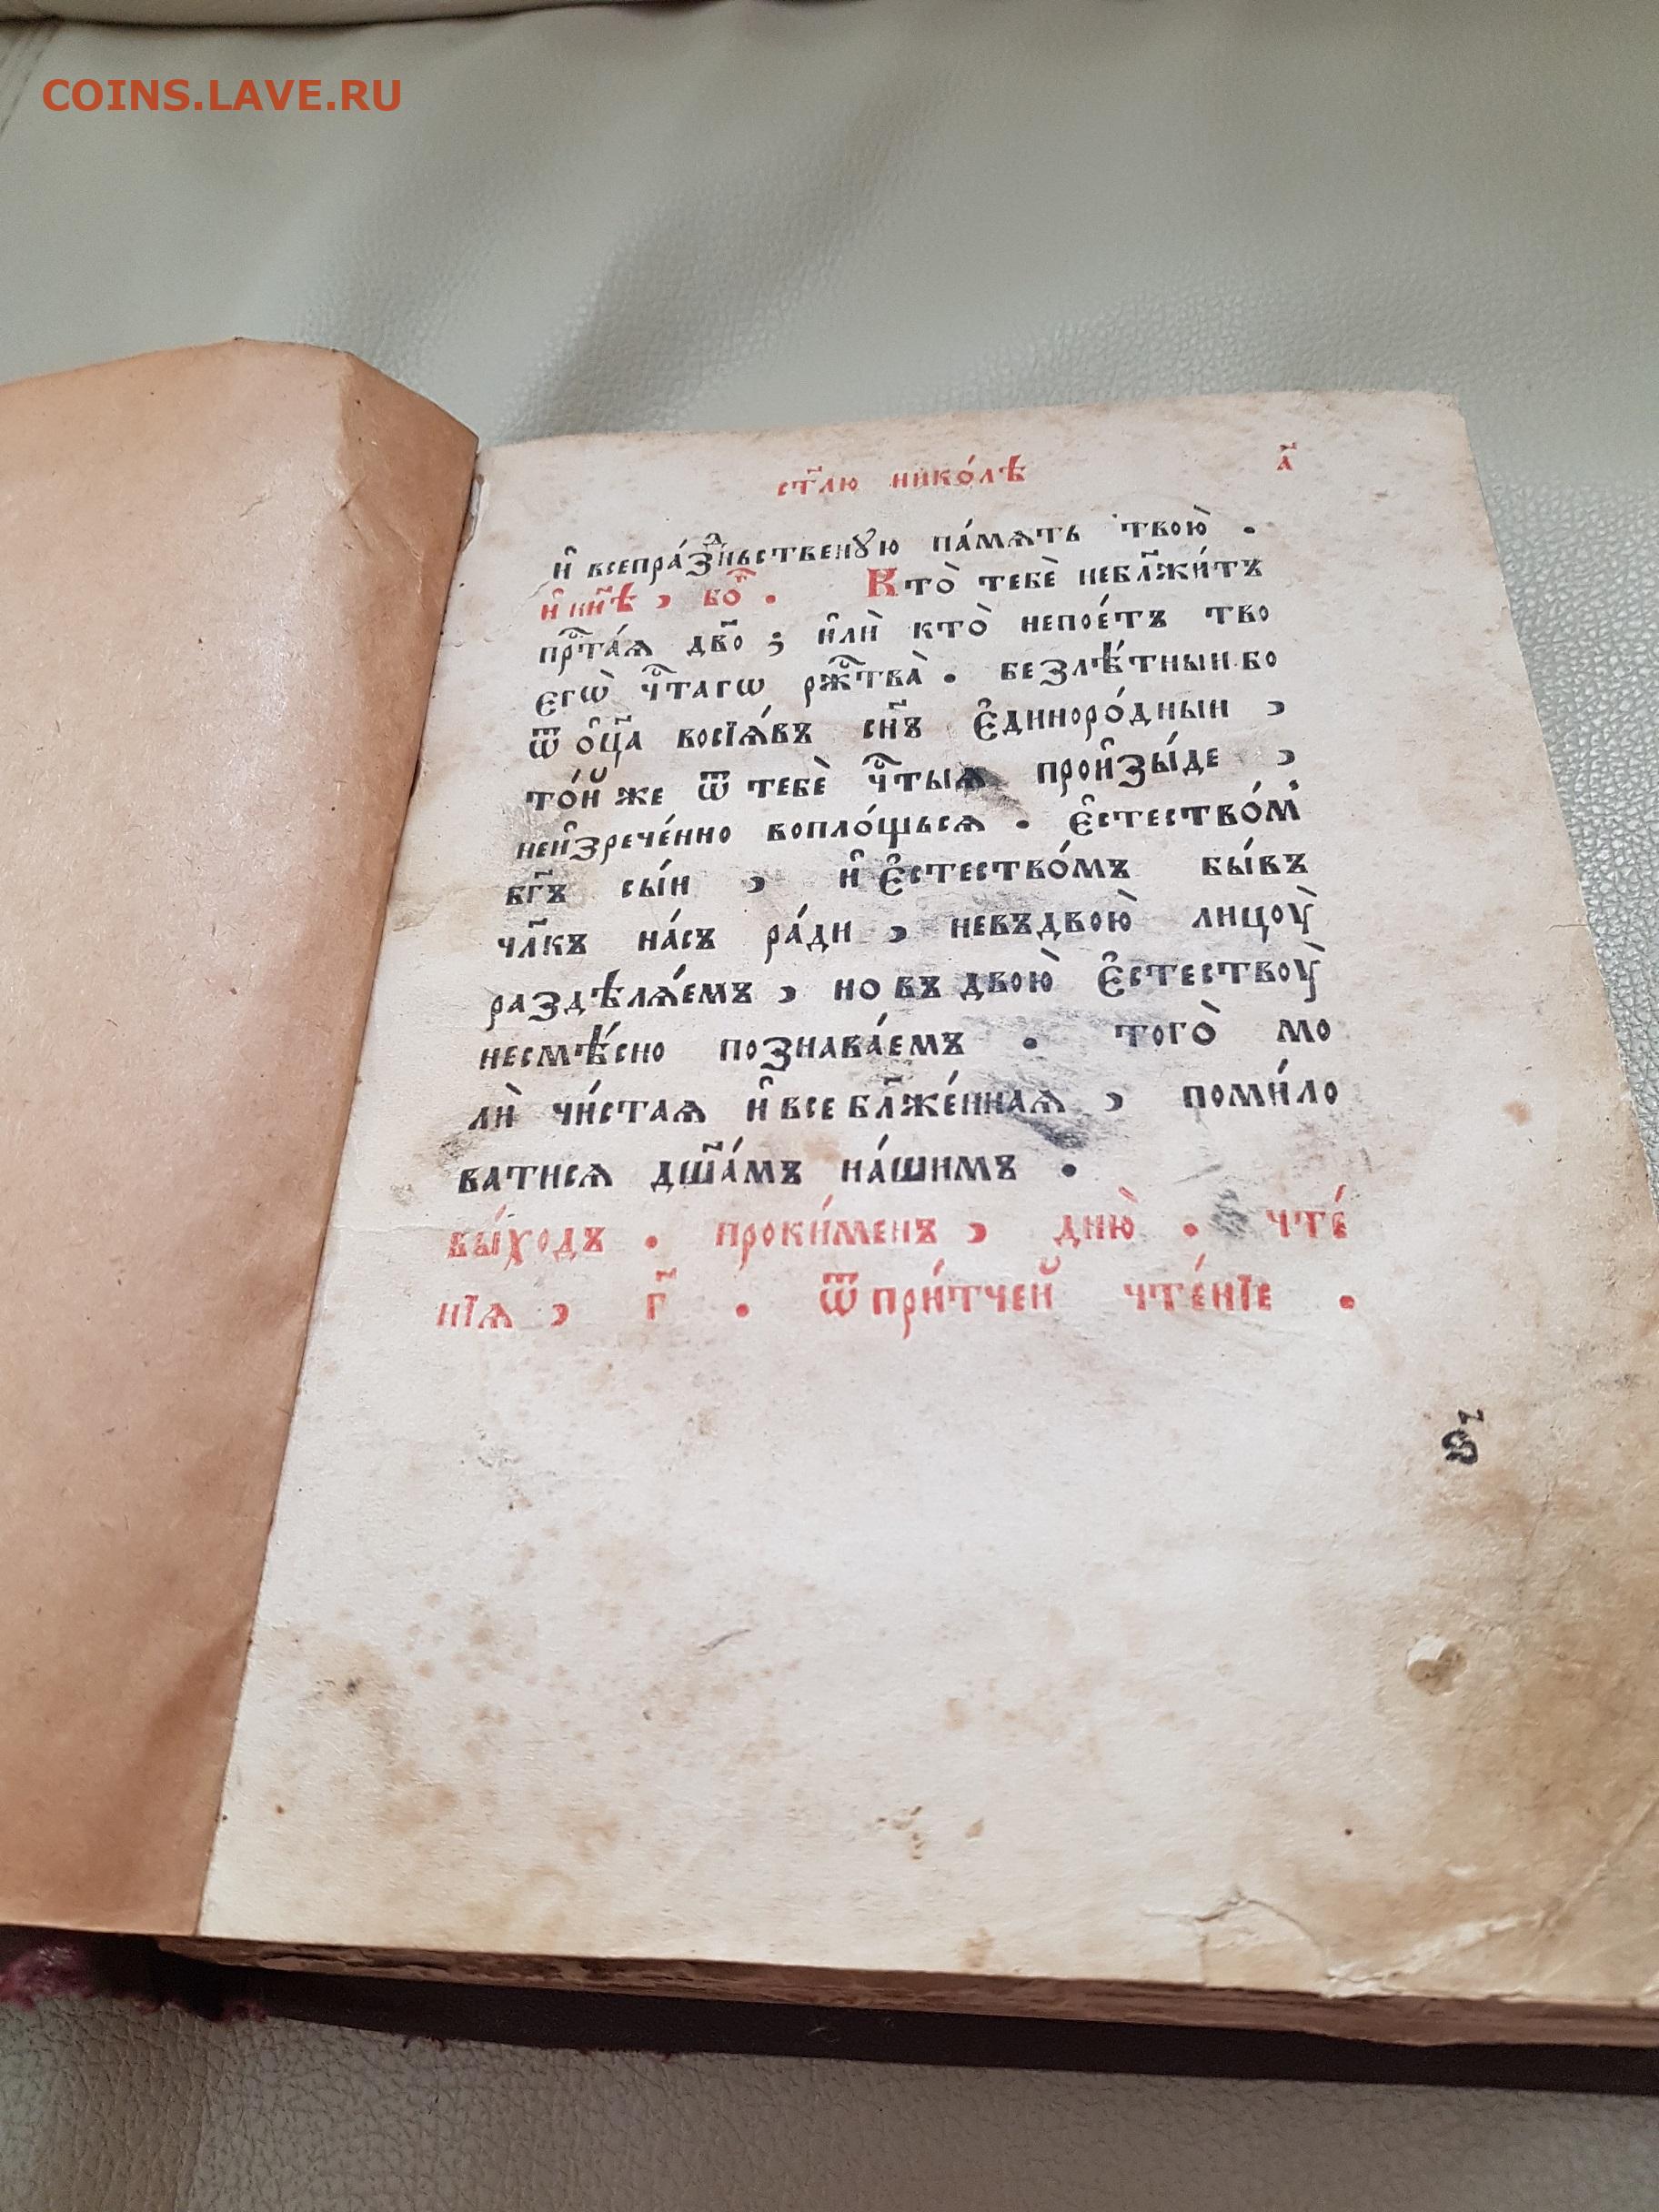 COINS.LAVE.RU
ст҃лю нико́лѣ а҃
и҆ всепра́зⷣньственꙋю па́мѧть твою̀ .
и҆ нн҃ѣ , бо҃ . Кто̀ тебѐ небл҃жи́тъ
прⷭ҇та́ѧ дв҃о ; и҆лѝ кто̀ непое́тъ тво
егѡ̀ чⷭ҇тагѡ ржⷭ҇тва̀ . безлѣ́тныи бо
ѿ о҆ц҃а восїѧ́въ сн҃ъ є҆диноро́дныи ,
то́й же ѿ тебѐ чⷭ҇тыѧ прои҆зы́де ,
неи҆зрече́нно вопло́щьсѧ . є҆стество́м̾
бг҃ъ сы́и , и҆ є҆стество́мъ бы́въ
чл҃къ на́съ ра́ди , невъдвою̀ лицоу̀
раздѣлѧ́емъ , но въ двою̀ є҆стествоу̀
несмѣ́сно познава́емъ . того̀ мо
лѝ чи́стаѧ и҆ все бл҃же́ннаѧ , поми́ло
ватисѧ дш҃а́мъ на́шимъ .
вы́ходъ . проки́менъ , дню̀ . чте́
нїѧ , г҃ . ѿ при́тчей чте́нїе .